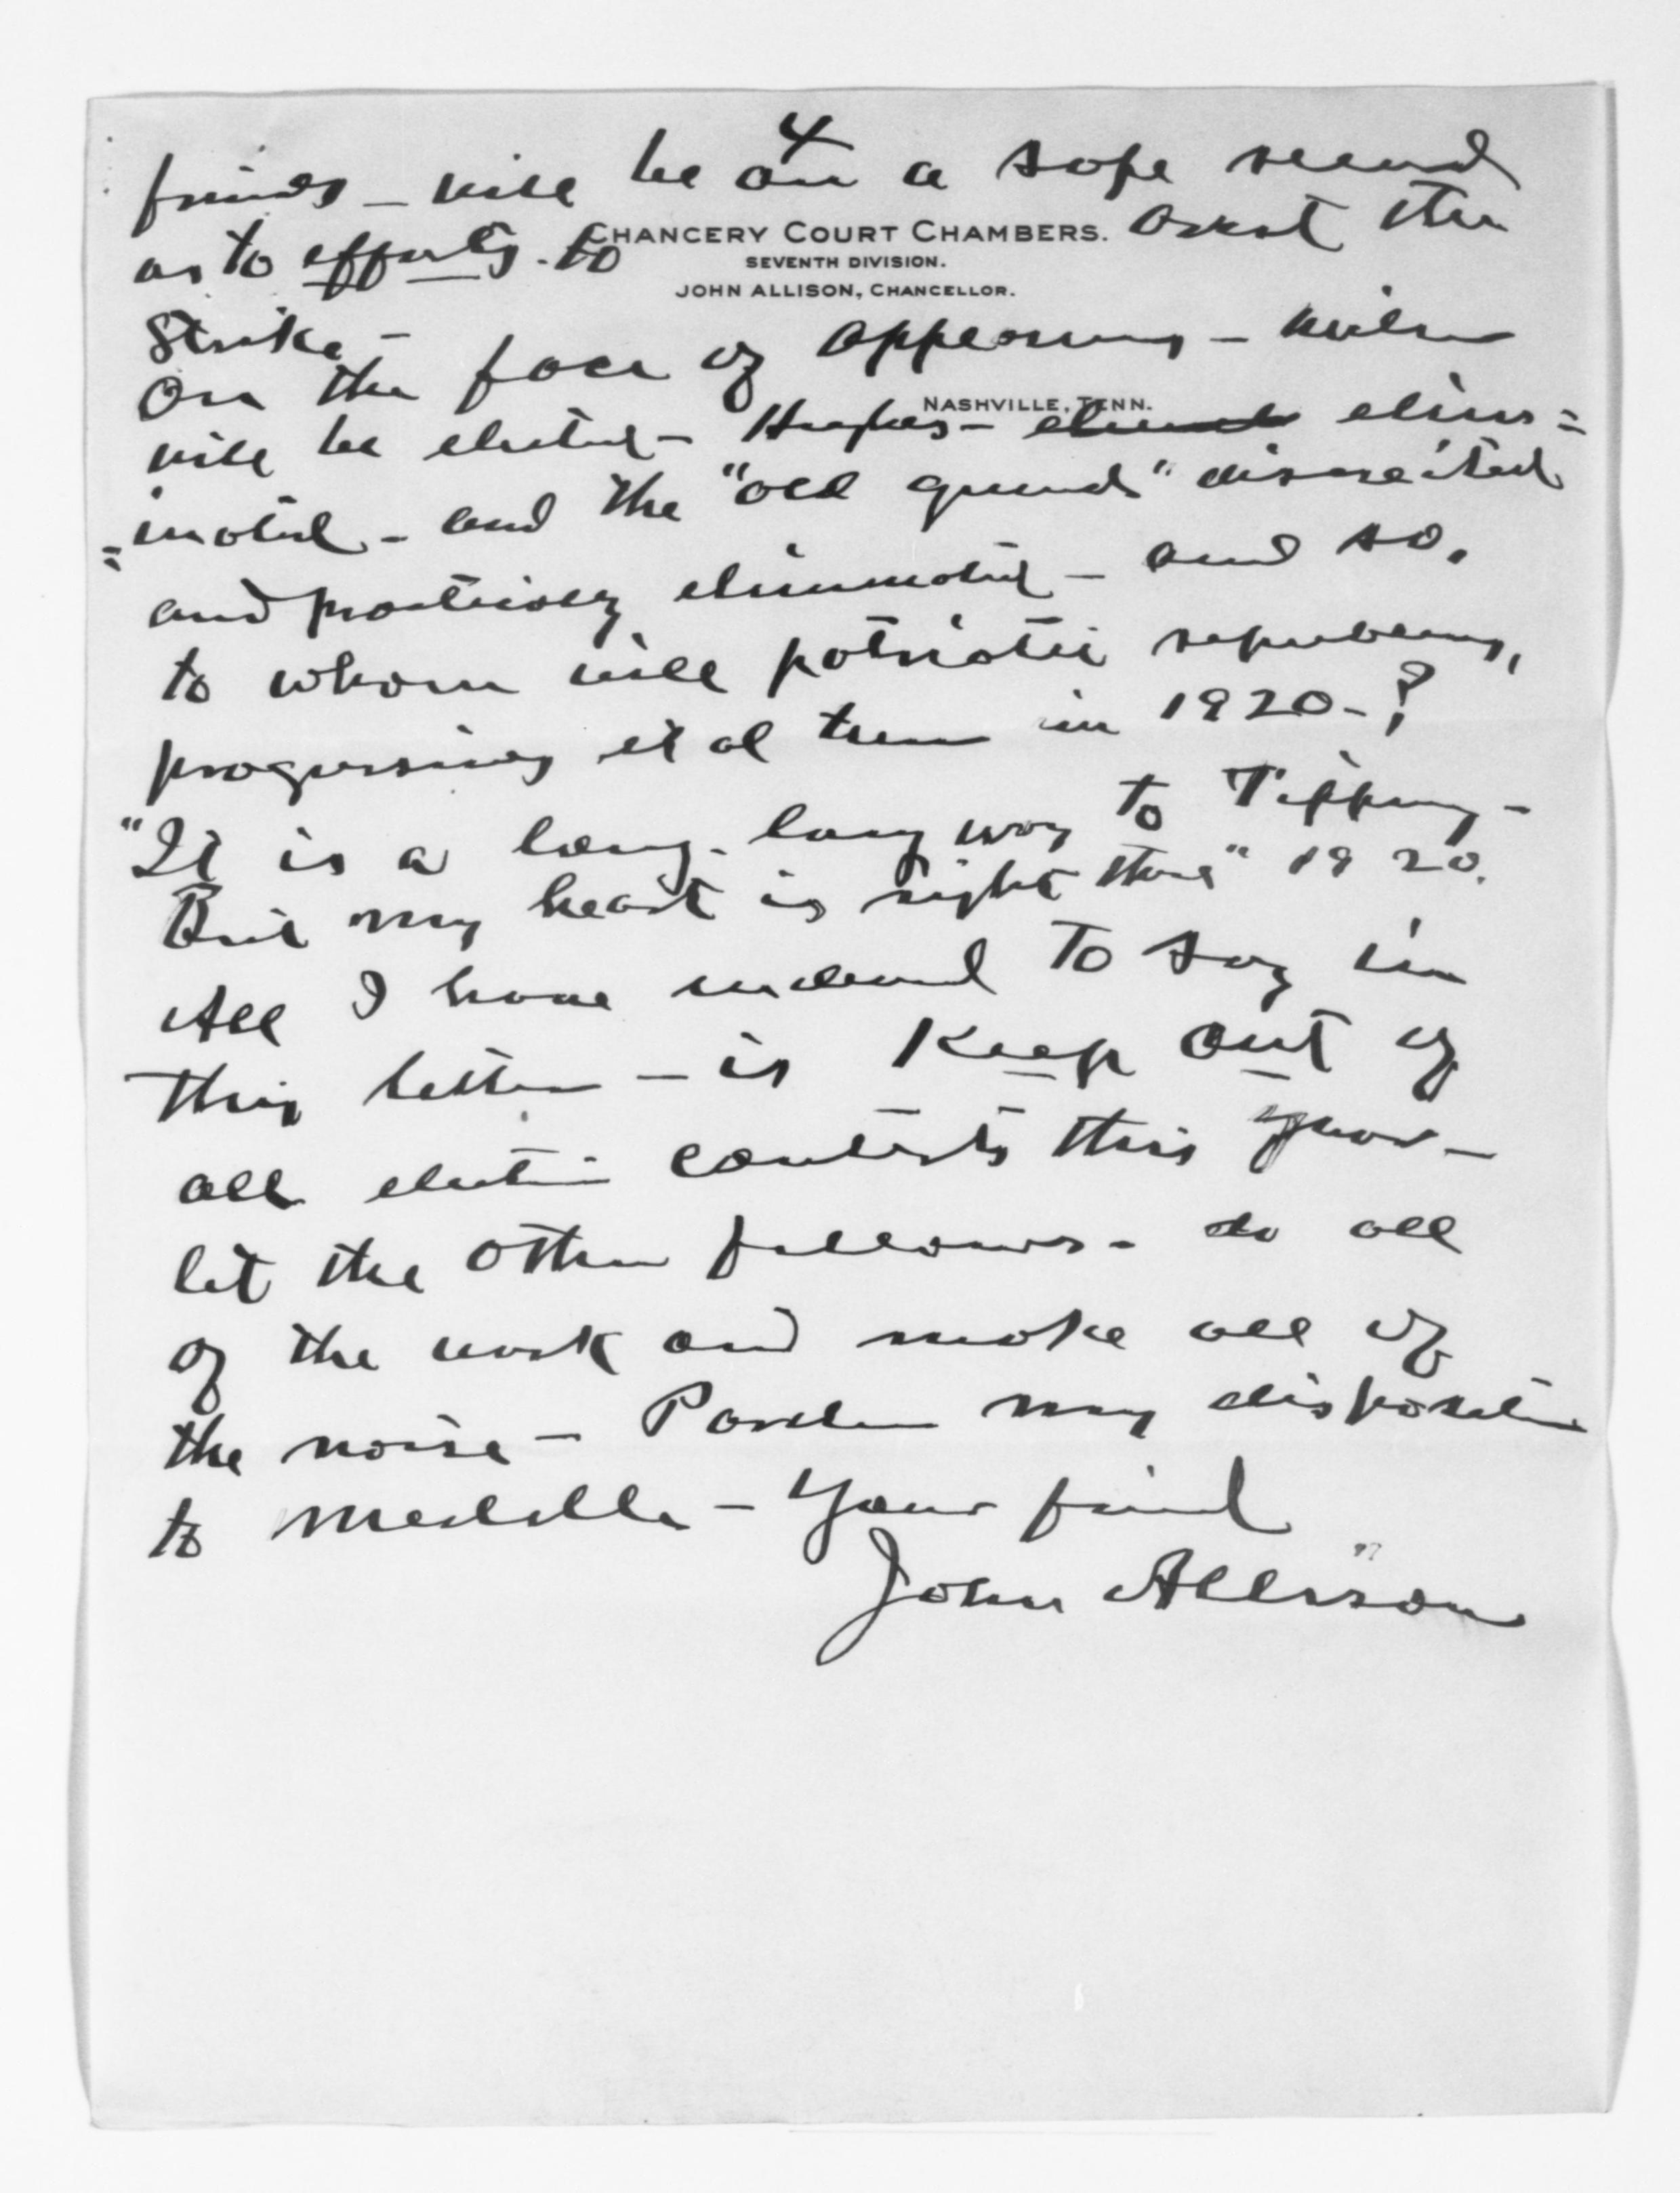 4
friends - will be on a safe record
CHANCERY COURT CHAMBERS.
as to efforts. to avert the
SEVENTH DIVISION.
JOHN ALLISON, CHANCELLOR.
Strike -
On the face of appearances - Wilson
NASHVILLE, TENN.
will be elected - Hughes - elimi=
=inated - and the "old guards" discredited
and practically eliminated - and so,
to whom will patriotic republicans,
progressives et al turn in 1920 - ?
"It is a long - long way to Tipperary -
But my heart is right there" 1920.
All I have indeed to say in
this letter - is Keep out of
all election contests this year -
let the other fellows - do all
of the work and make all of
the noise - Pardon my disposition
to meddle - Your friend
John Allison